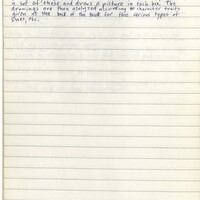 a set of these and draws a picture in each box. The
drawings are then analyzed according to character traits
given at the back of the book for the various types of
lines, etc.